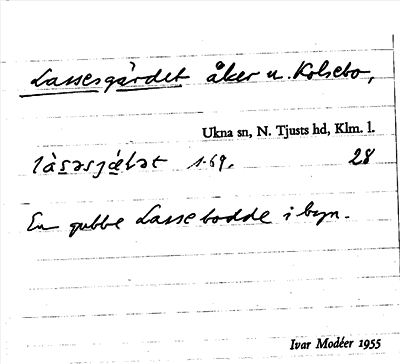 Lassesgärdet åker u. Kolsebo,
Ukna sn, N. Tjusts hd, Klm. l.
1·69. 28
En gubbe Lasse bodde i byn.
Ivar Modéer 1955